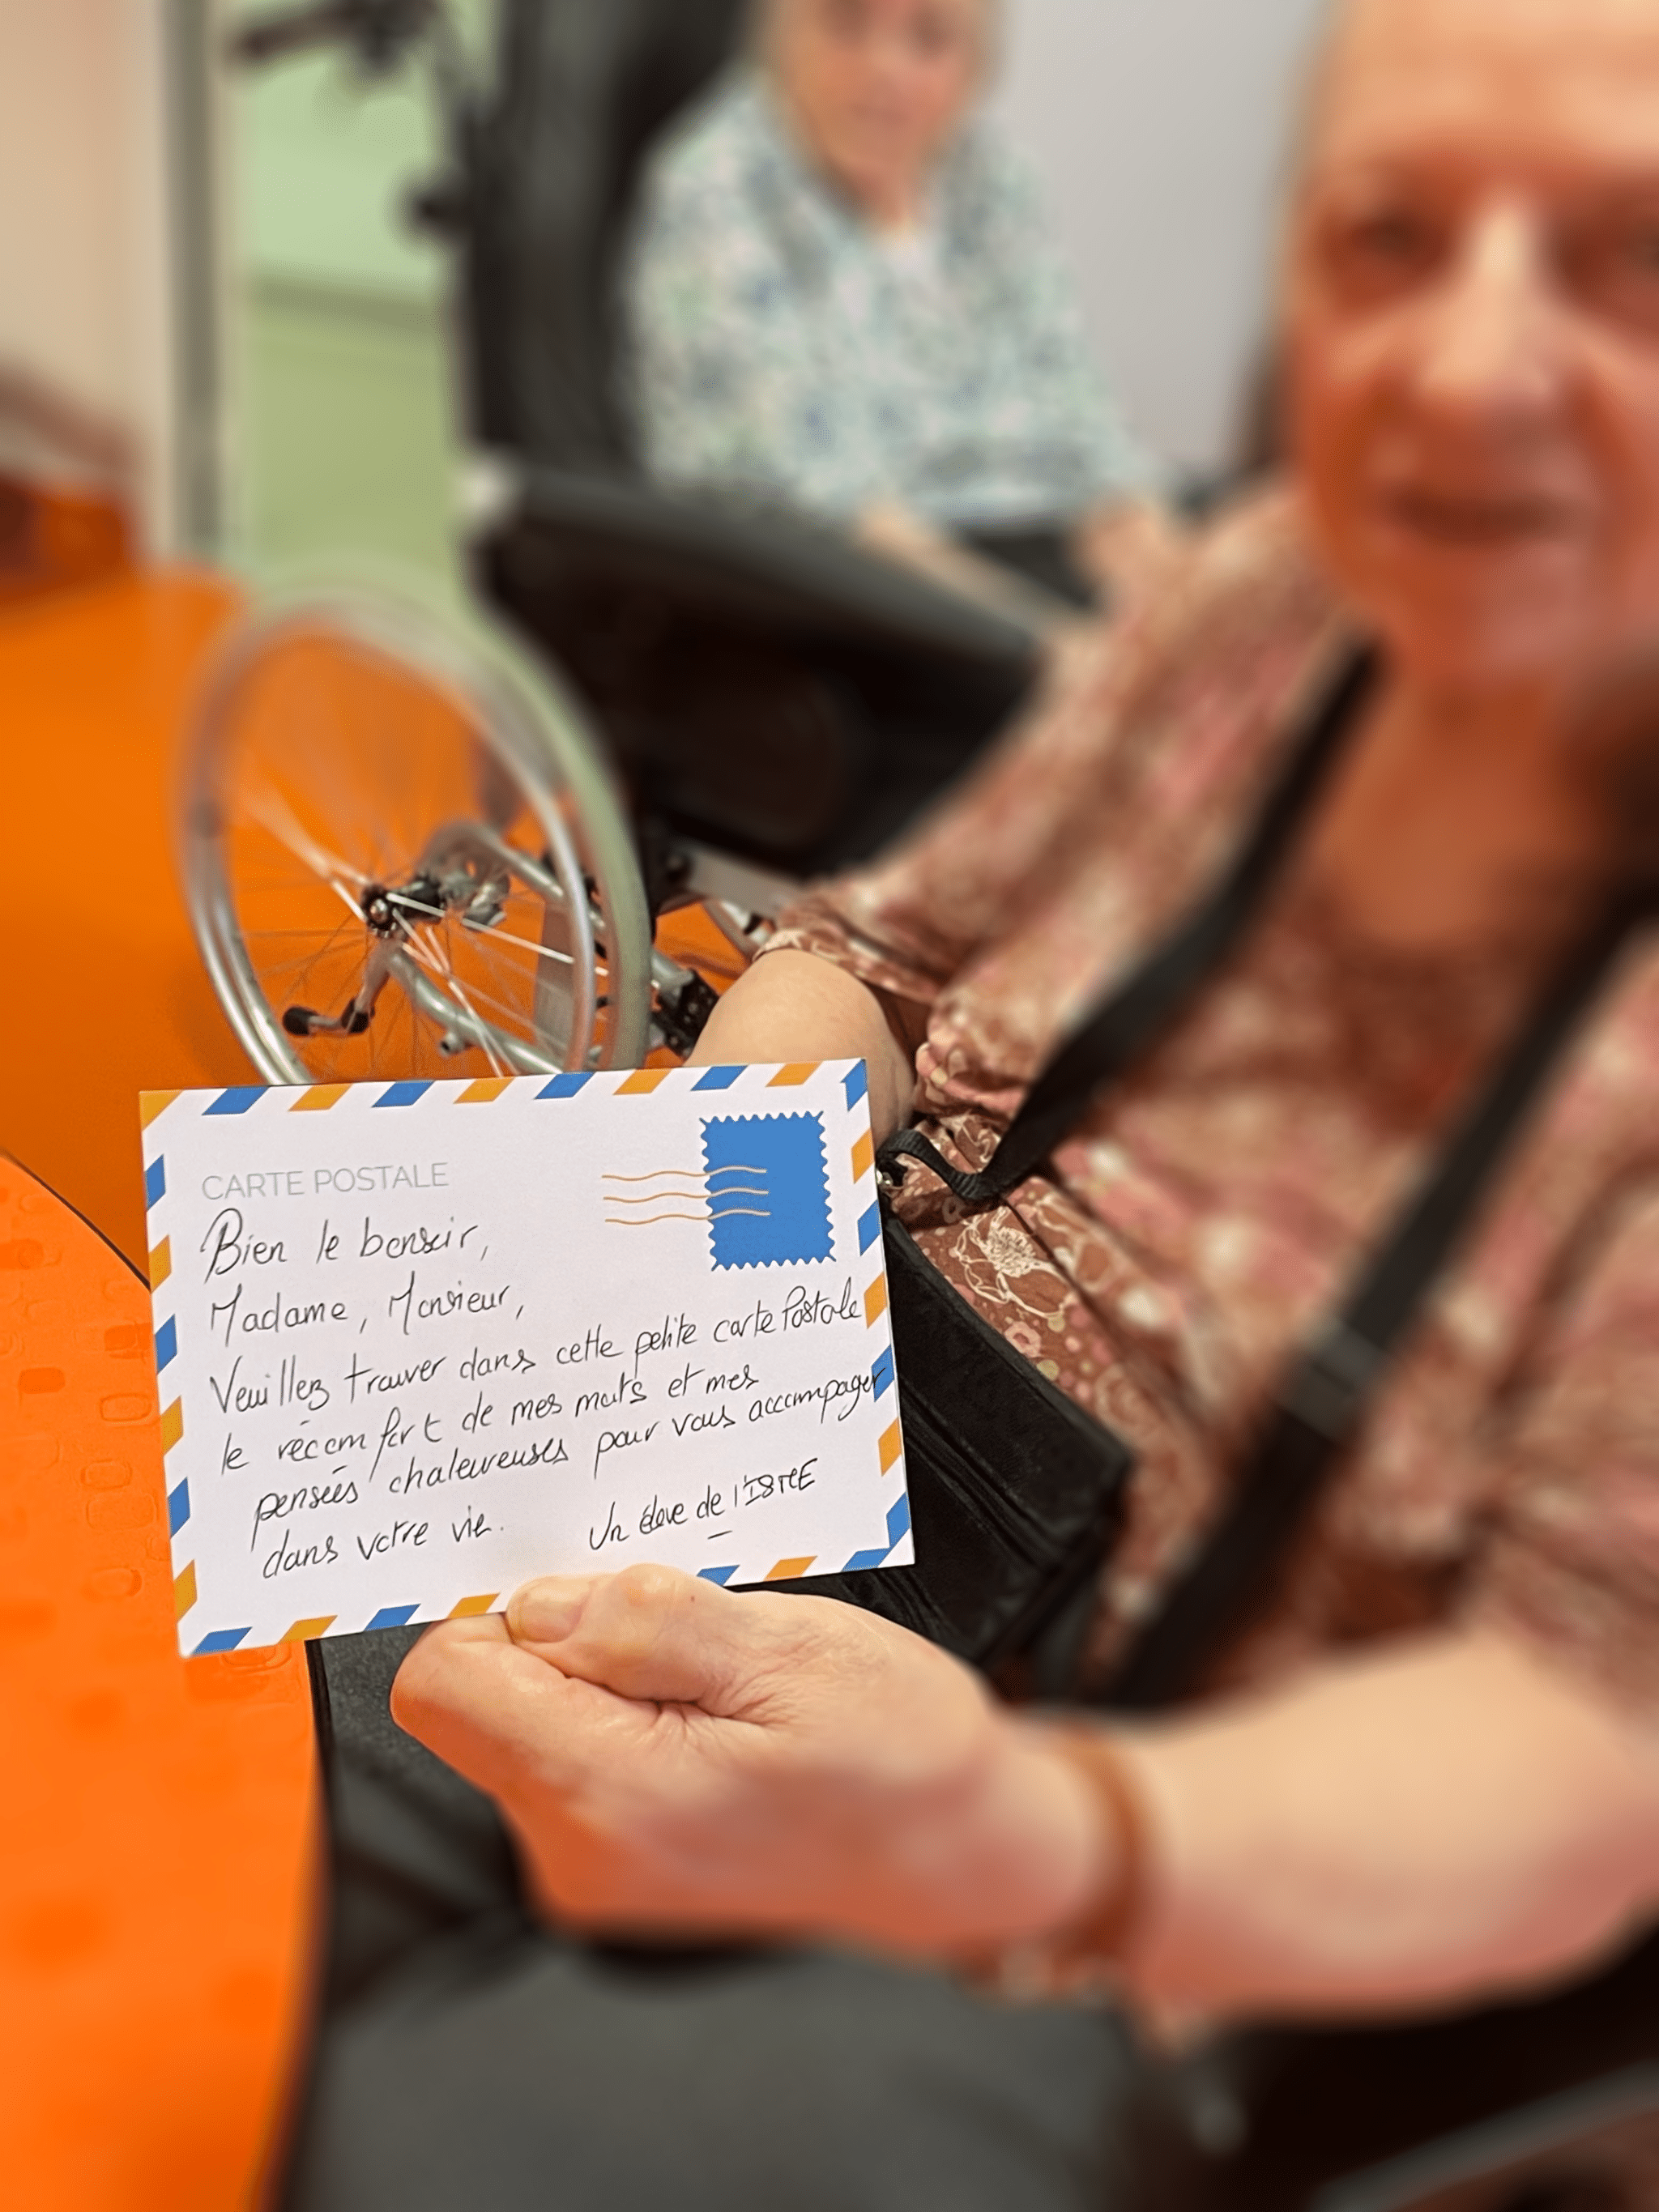 CARTE POSTALE
Bien le bonsoir,
Madame, Monsieur,
Veuillez trouver dans cette petite carte Postale
le réconfort de mes mots et mes
pensées chaleureuses pour vous accompager
dans votre vie.
Un élève de l'ISTCE